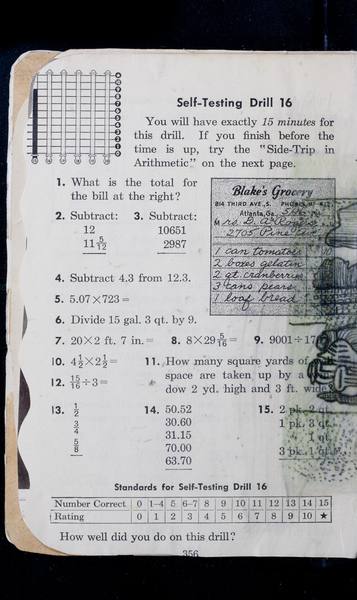 Self-Testing Drill 16
You will have exactly 15 minutes for
this drill. If you finish before the
time is up, try the "Side-Trip in
Arithmetic" on the next page.
1. What is the total for
the bill at the right?
Blake's Grocery
814 THIRD AVE., S.
Atlanta, Ga.
2705 Pine
1 can tomatoes
2 boxes gelatin
2 qt. cranberries
3 cans pears
1 loaf bread
2. Subtract:
12
11 5/12
3. Subtract:
10651
2987
4. Subtract 4.3 from 12.3.
5. 5.07×723=
6. Divide 15 gal. 3 qt. by 9.
7. 20×2 ft. 7 in.=
8. 8×29 5/16=
9. 9001÷17
10. 4½×2½=
11. How many square yards of
space are taken up by a
dow 2 yd. high and 3 ft. wide
12. 15/16÷3=
13. 1/2
3/4
5/8
14. 50.52
30.60
31.15
70.00
63.70
15. 2 pk. 2 qt.
1 pk. 3 qt.
1 qt.
3 pk. 1 qt.
Standards for Self-Testing Drill 16
Number Correct 0 1-4 5 6-7 8 9 10 11 12 13 14 15
Rating 0 1 2 3 4 5 6 7 8 9 10 ★
How well did you do on this drill?
356